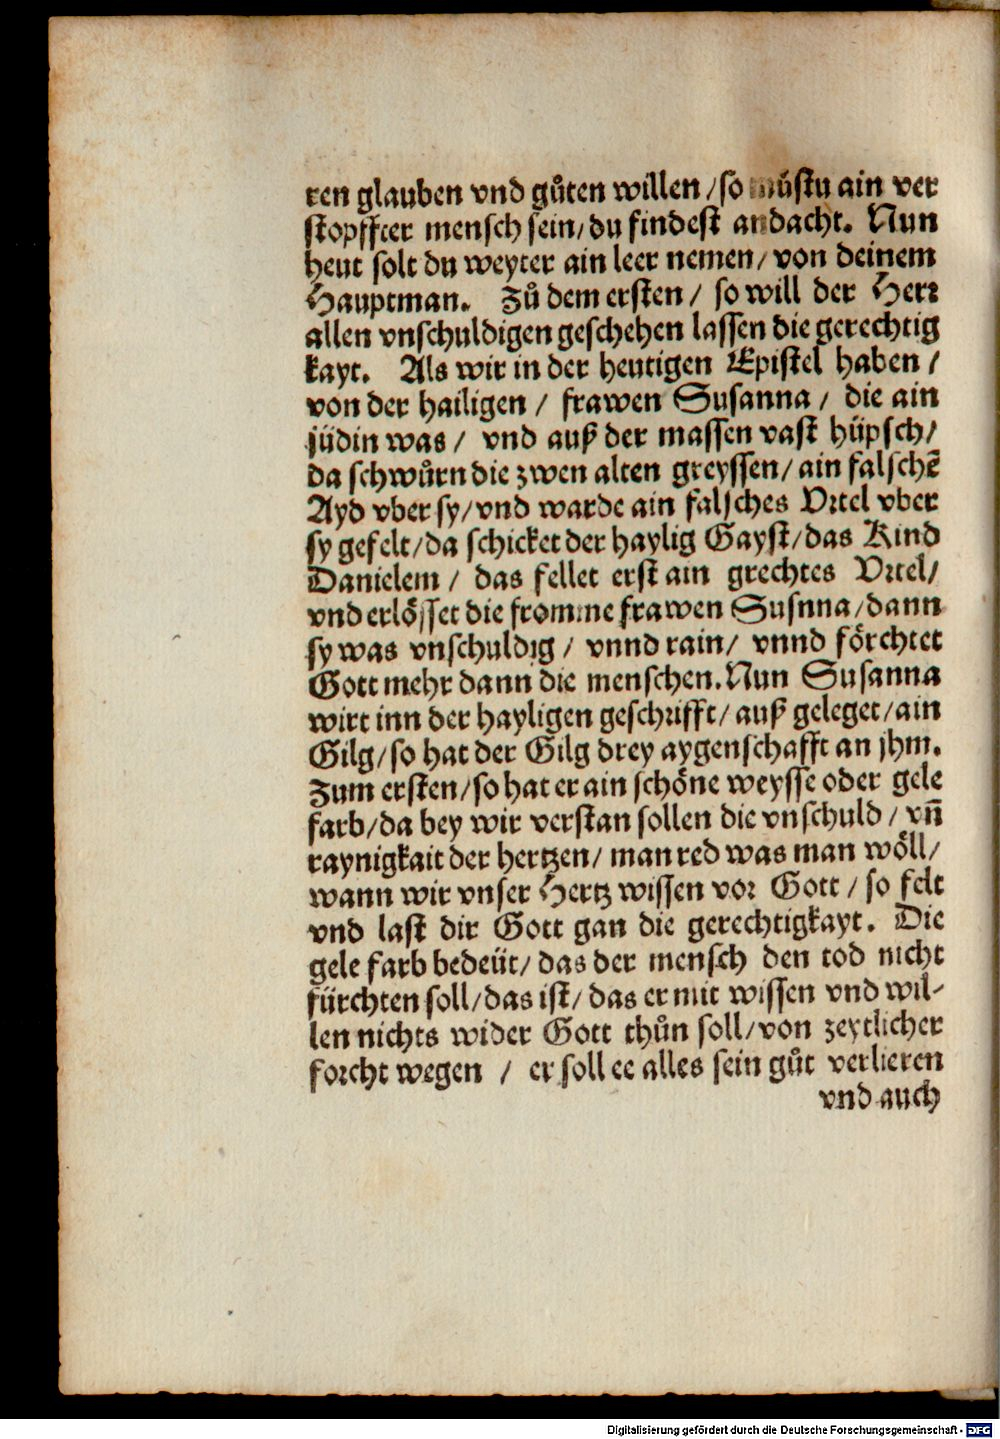 ren glauben vnd gůten willen / so můstu ain ver
stopffter mensch sein / du findest andacht. Nun
heut solt du weyter ain leer nemen / von deinem
Hauptman. Zů dem ersten / so will der Herꝛ
allen vnschuldigen geschehen lassen die gerechtig
kayt. Als wir in der heutigen Epistel haben /
von der hailigen / frawen Susanna / die ain
jüdin was / vnd auß der massen vast hüpsch /
da schwůrn die zwen alten greyssen / ain falschē
Ayd vber sy / vnd warde ain falsches Vꝛtel vber
sy gefelt / da schicket der haylig Gayst / das Kind
Danielem / das fellet erst ain grechtes Vꝛtel /
vnd erlösset die fromme frawen Susnna / dann
sy was vnschuldig / vnnd rain / vnnd förchtet
Gott mehr dann die menschen. Nun Susanna
wirt inn der hayligen geschrifft / auß geleget / ain
Gilg / so hat der Gilg drey aygenschafft an jhm.
Zum ersten / so hat er ain schöne weysse oder gele
farb / da bey wir verstan sollen die vnschuld / vñ
raynigkait der hertzen / man red was man wöll /
wann wir vnser Hertz wissen voꝛ Gott / so felt
vnd last dir Gott gan die gerechtigkayt. Die
gele farb bedeüt / das der mensch den tod nicht
fürchten soll / das ist / das er mit wissen vnd wil-
len nichts wider Gott thůn soll / von zeytlicher
foꝛcht wegen / er soll ee alles sein gůt verlieren
vnd auch
Digitalisierung gefördert durch die Deutsche Forschungsgemeinschaft - DFG